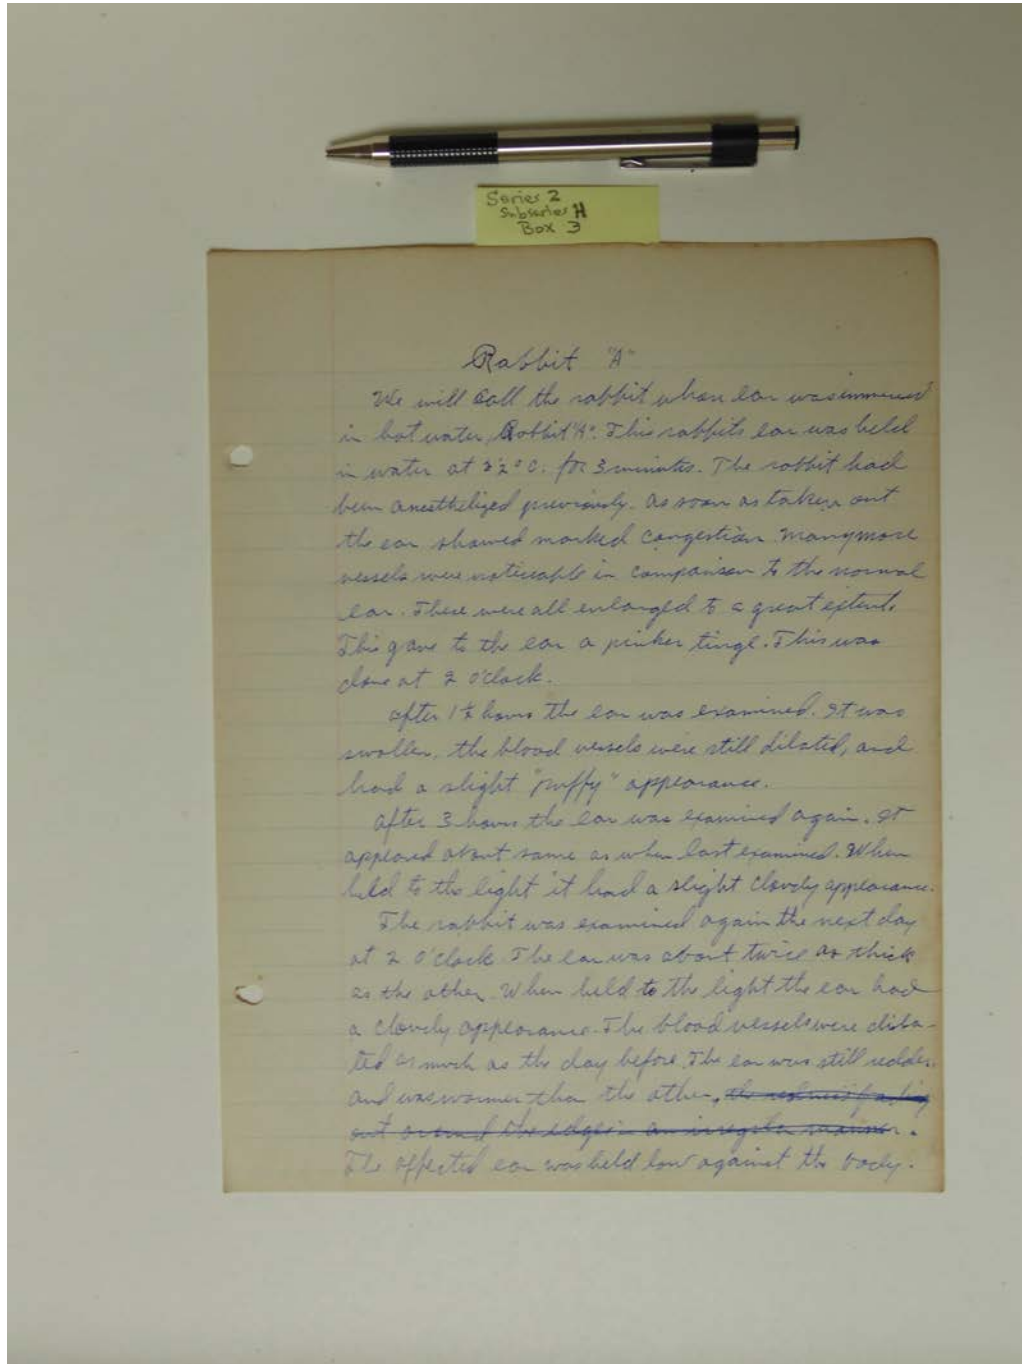 Series 2
Subseries H
Box 3
Rabbit "A"
We will call the rabbit whose ear was immersed
in hot water, Rabbit "A". This rabbits ear was held
in water at °C. for 3 minutes. The rabbit had
been anesthetized previously. As soon as taken out
the ear showed marked congestion. Many more
vessels were noticeable in comparison to the normal
ear. These were all enlarged to a great extent.
This gave to the ear a pinker tinge. This was
done at 2 o'clock.
After 1½ hours the ear was examined. It was
swollen, the blood vessels were still dilated, and
had a slight "puffy" appearance.
After 3 hours the ear was examined again. It
appeared about same as when last examined. When
held to the light it had a slight cloudy appearance.
The rabbit was examined again the next day
at 2 o'clock. The ear was about twice as thick
as the other. When held to the light the ear had
a cloudy appearance. The blood vessels were dila-
ted as much as the day before. The ear was still redder
and was warmer than the other, the redness fading
out around the edge in an irregular manner.
The affected ear was held low against the body.